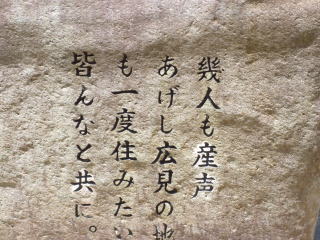 幾人も産声
あげし広見の地
も一度住みたい
皆んなと共に。